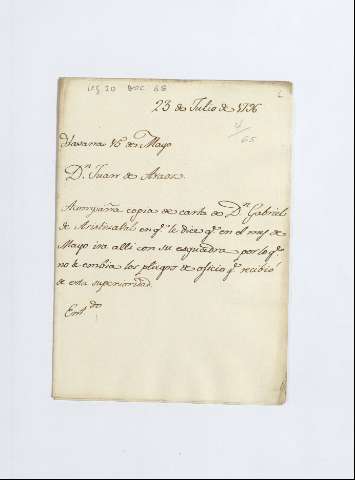 Leg 20 Doc 65
23 de Julio de 1796
4/65
Havana 16 de Mayo
Dn. Juan de Araoz
Acompaña copia de carta de Dn. Gabriel
de Aristizabal en qe. le dice qe. en el mes de
Mayo ira alli con su esquadra, por lo qe.
no le embia los pliegos de oficio qe. recibió
de esta superioridad.
Entdo.